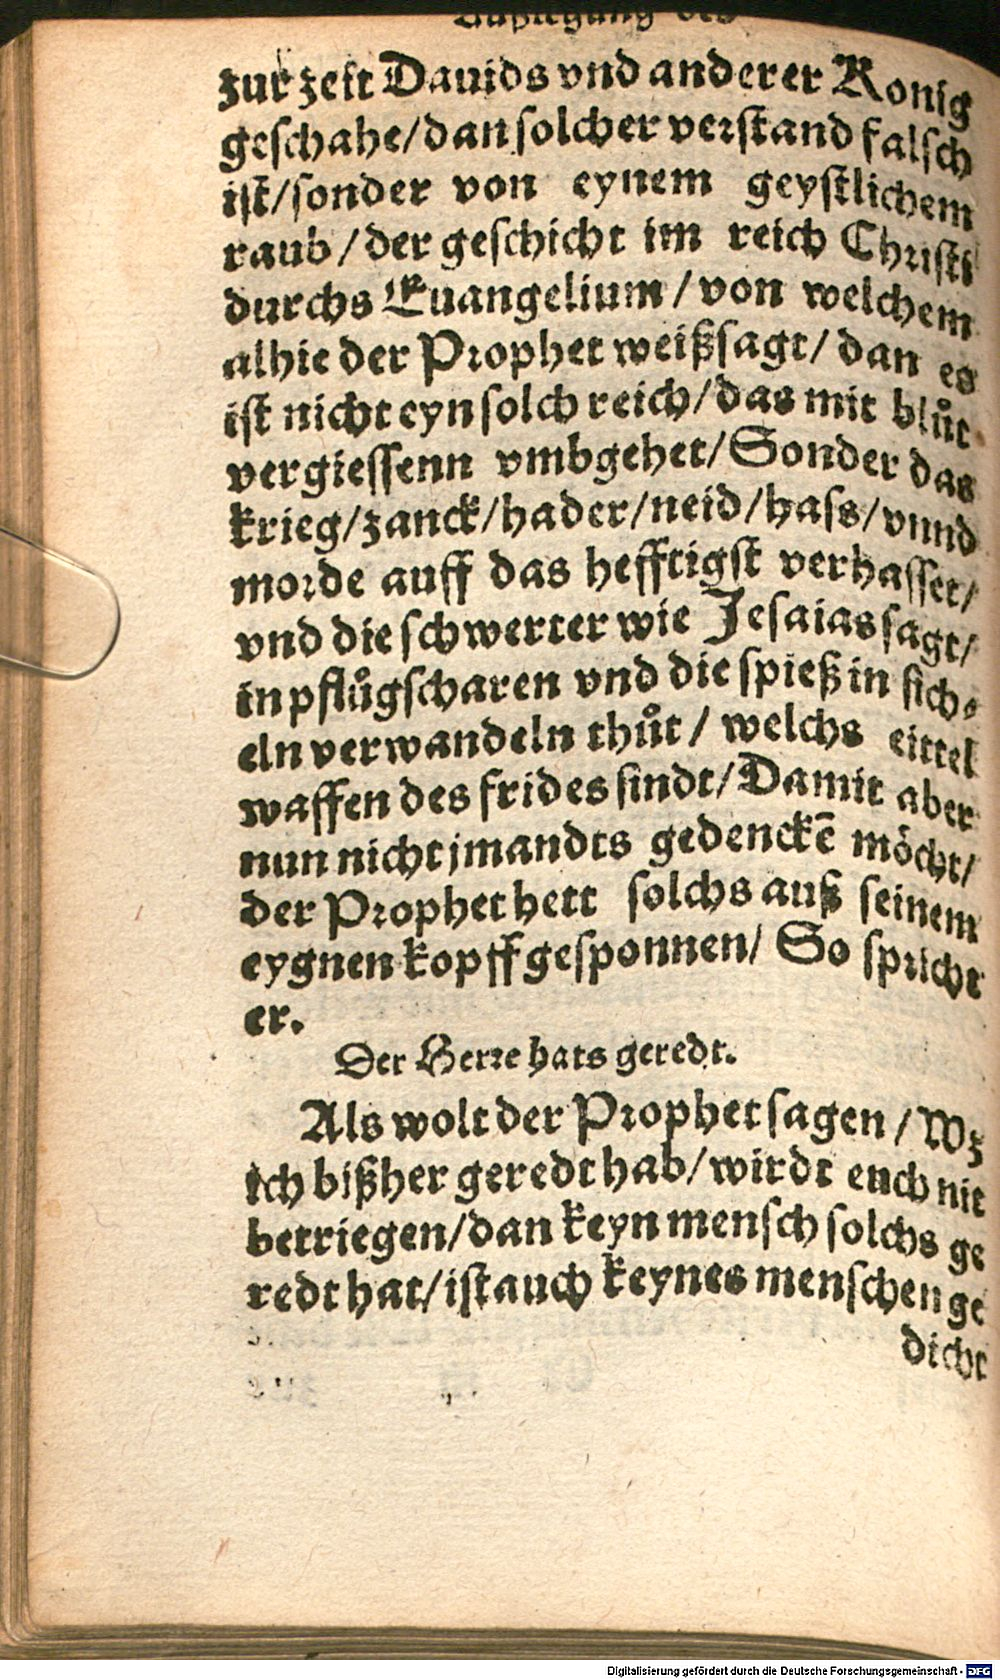 Außlegung des
zur zeit Dauids vnd anderer Konig
geschahe/dan solcher verstand falsch
ist/sonder von eynem geystlichem
raub/der geschicht im reich Christi
durchs Euangelium/von welchem
alhie der Prophet weißsagt/dan es
ist nicht eyn solch reich/das mit blůt
vergiessenn vmbgehet/Sonder das
krieg/zanck/hader/neid/hass/vnnd
morde auff das hefftigst verhasset/
vnd die schwerter wie Jesaias sagt/
in pflůgscharen vnd die spieß in sich⸗
eln verwandeln thůt/welchs eittel
waffen des frides sindt/Damit aber
nun nicht jmandts gedenckē möcht/
der Prophet hett solchs auß seinem
eygnen kopff gesponnen/So spricht
er.
Der Herre hats geredt.
Als wolt der Prophet sagen/Wz
ich bißher geredt hab/wirdt euch nit
betriegen/dan keyn mensch solchs ge
redt hat/ist auch keynes menschen ge
dicht
Digitalisierung gefördert durch die Deutsche Forschungsgemeinschaft - DFG